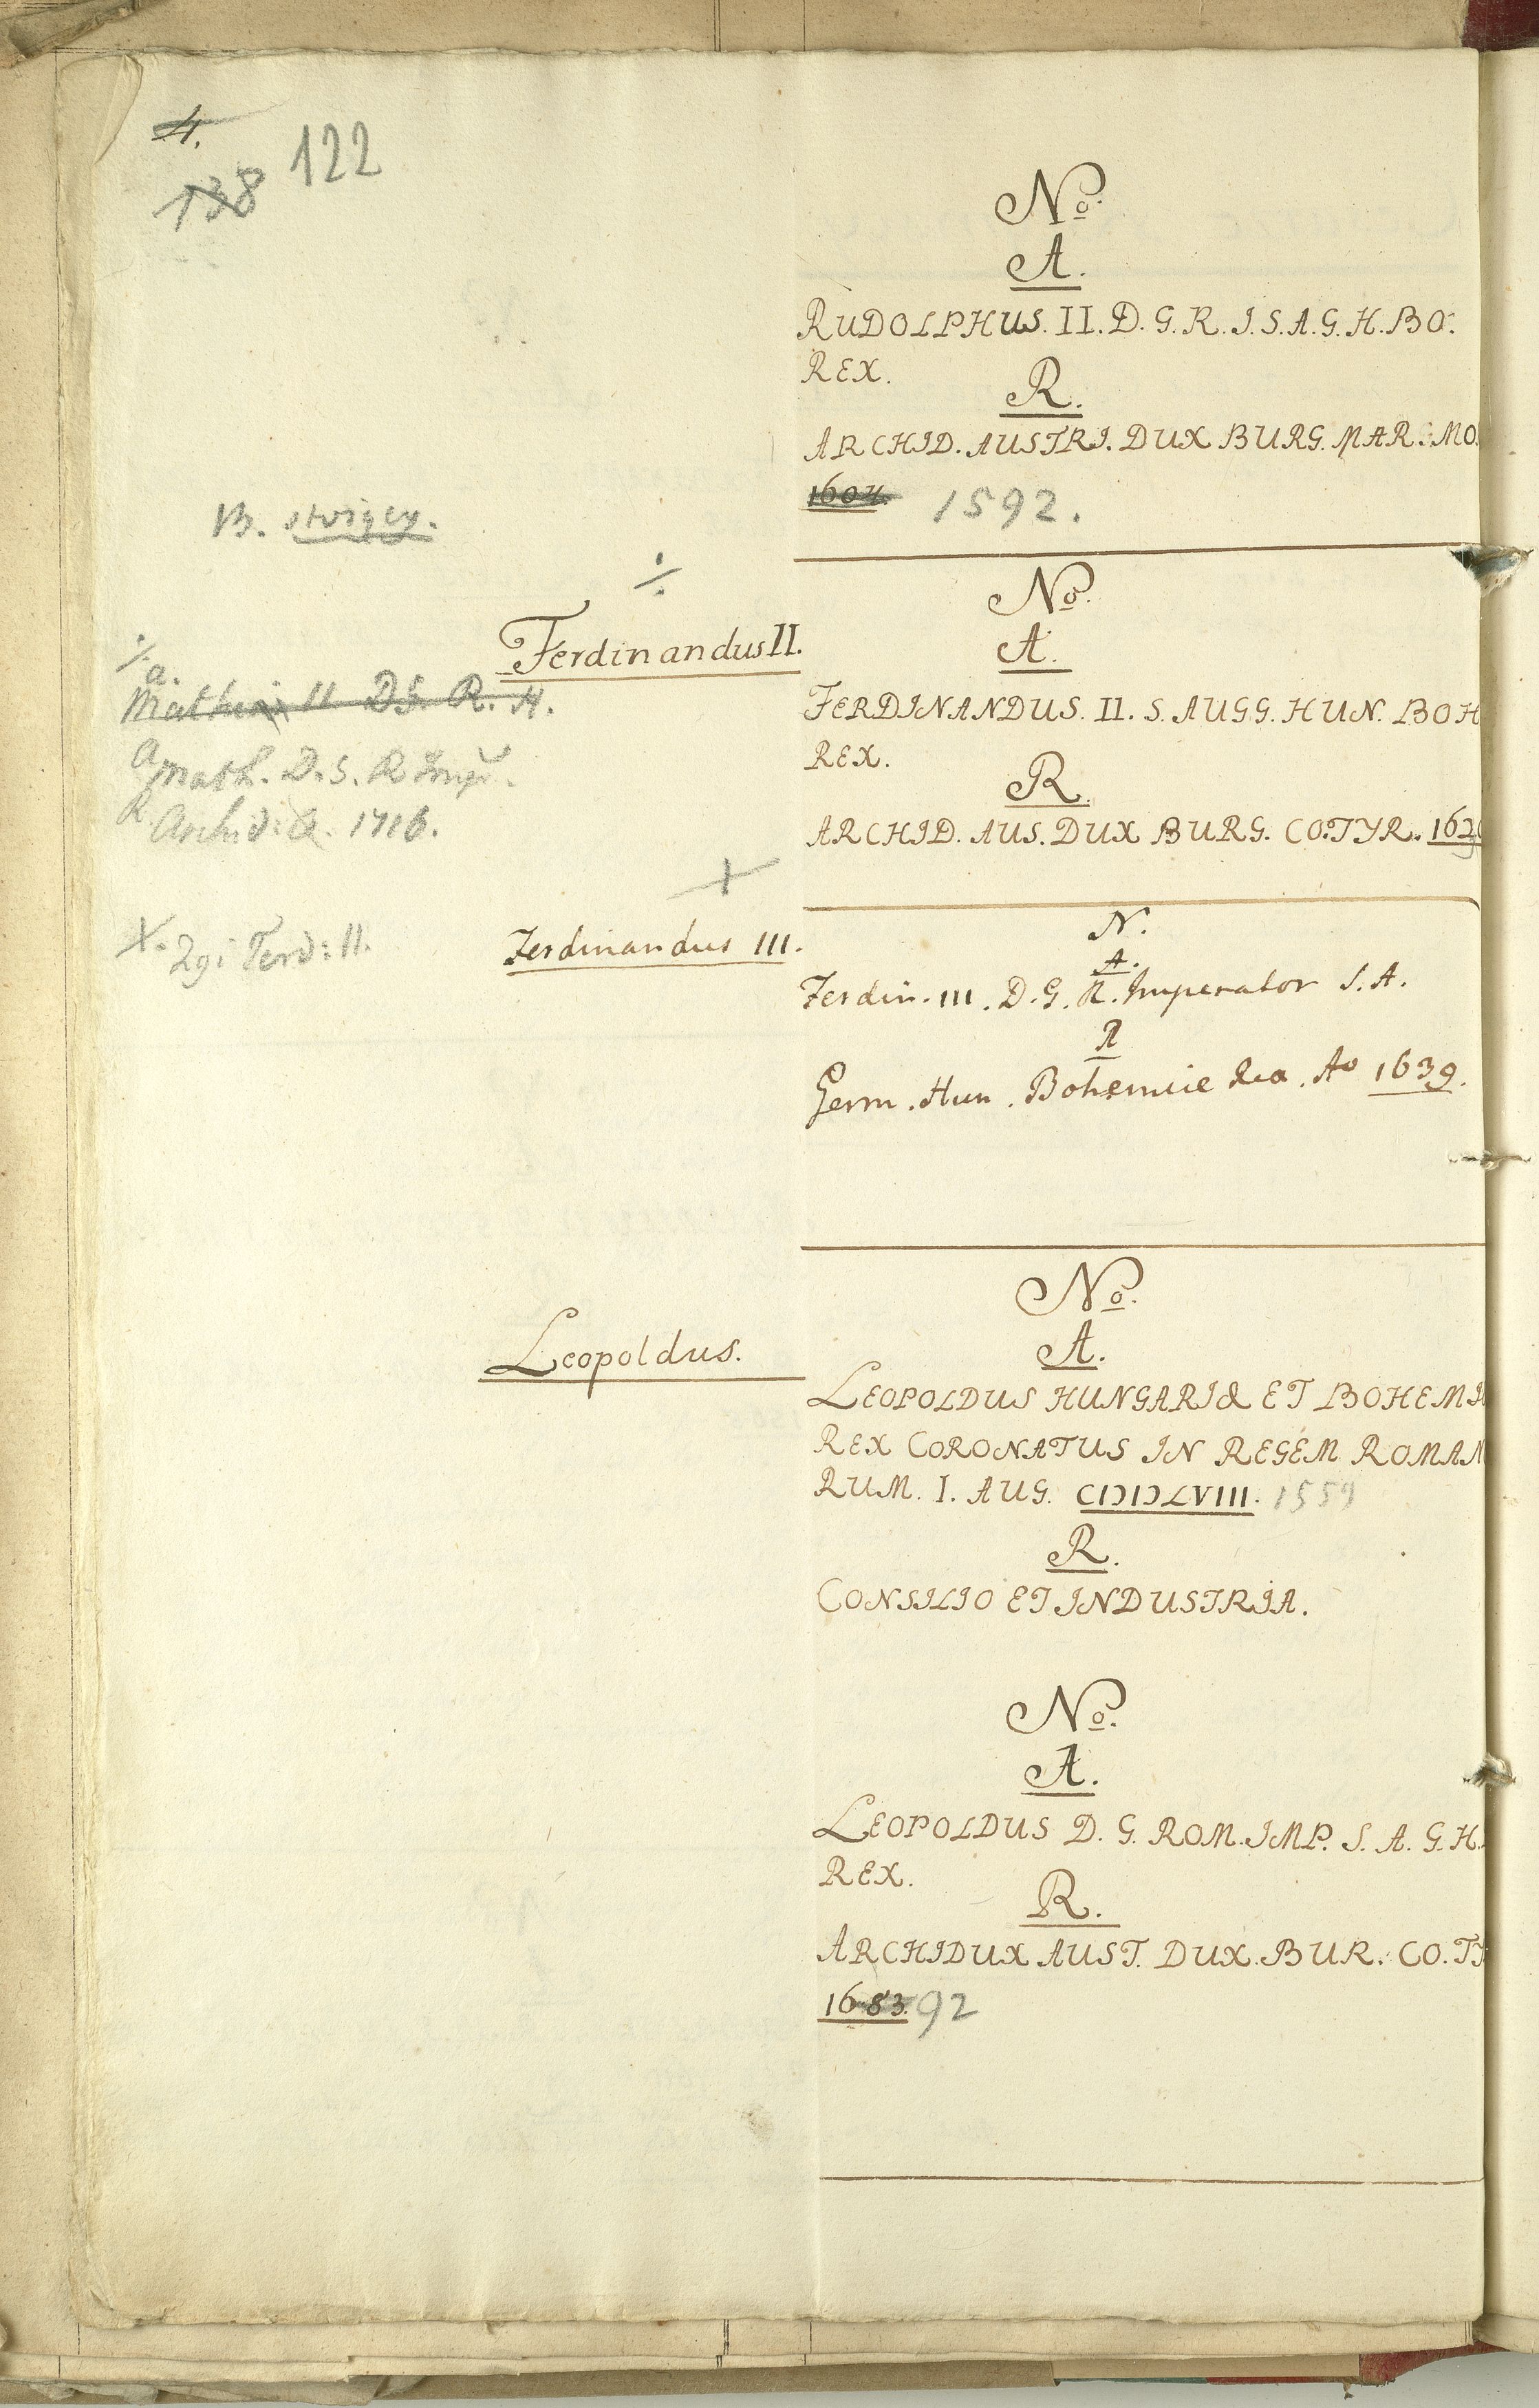 4.
138 122
No.
A.
RUDOLPHUS. II. D. G. R. I. S. A. G. H. BO.
REX.
R.
ARCHID. AUSTRI. DUX BURG. MAR. MO.
1604. 1592.
B.
÷
Ferdinandus II.
No.
A.
FERDINANDUS. II. S. AUGG. HUN. BOH
REX.
R.
ARCHID. AUS. DUX BURG. CO. TYR. 162
÷ a.
Mathias II DG. R. H.
a Math. D. S. R Imp.
R. Archid: A. 1716.
+
X. 2gi Ferd: II.
Ferdinandus III.
N.
A.
Ferdin. III. D. G. R. Imperator S. A.
R
Germ. Hun. Bohemiae Rex. Ao 1639.
No.
Leopoldus.
A.
LEOPOLDUS HUNGARIÆ ET BOHEMI
REX CORONATUS IN REGEM ROMAN
RUM. I. AUG. CIƆIƆLVIII. 1559
R.
CONSILIO ET INDUSTRIA.
No.
A.
LEOPOLDUS D. G. ROM. IMP. S. A. G. H.
REX.
R.
ARCHIDUX AUST. DUX. BUR. CO. TY
1683. 92